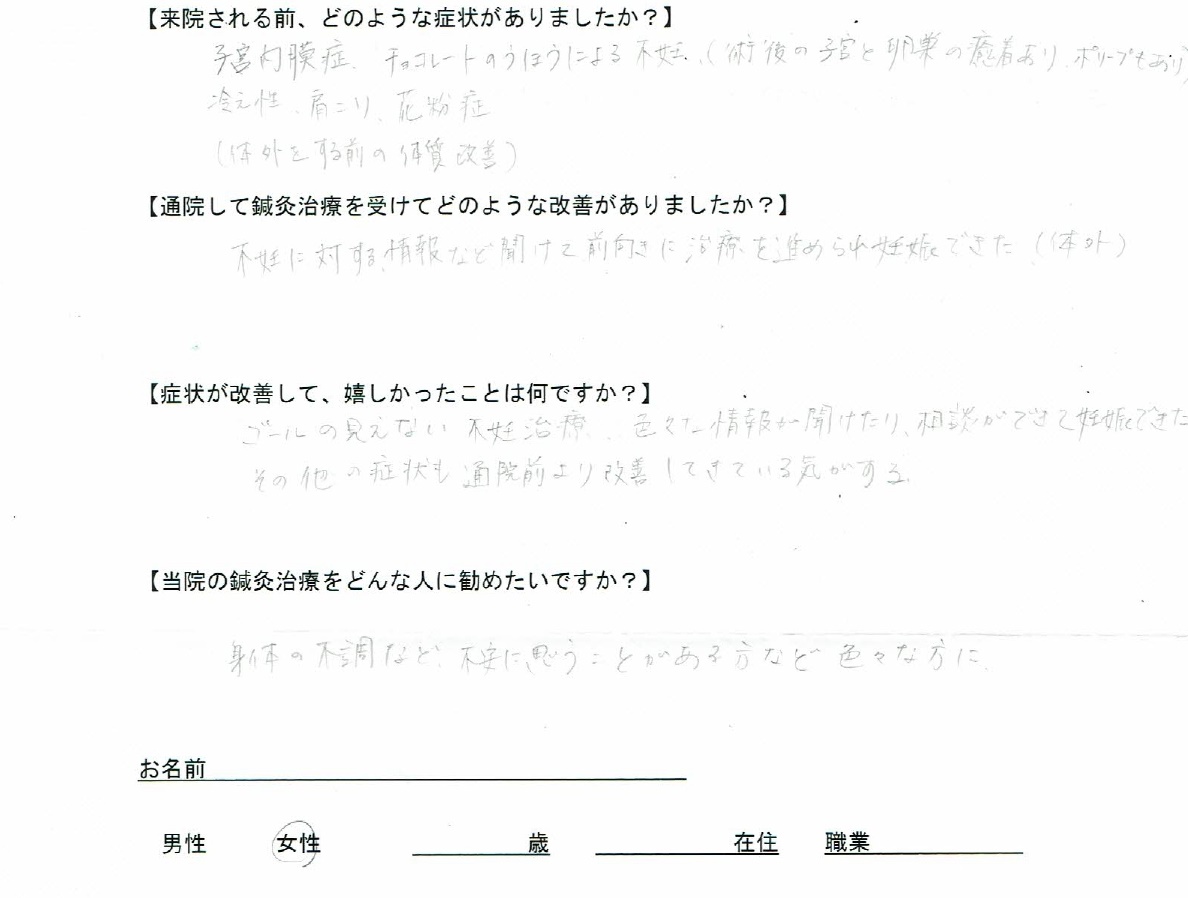 【来院される前、どのような症状がありましたか？】
子宮内膜症、チョコレートのうほうによる不妊、（術後の子宮と卵巣の癒着あり、ポリープもあり）
冷え性、肩こり、花粉症
（体外をする前の体質改善）
【通院して鍼灸治療を受けてどのような改善がありましたか？】
不妊に対する情報など聞けて前向きに治療を進められ妊娠できた（体外）
【症状が改善して、嬉しかったことは何ですか？】
ゴールの見えない不妊治療、色々な情報が聞けたり、相談ができて妊娠できた
その他の症状も通院前より改善してきている気がする。
【当院の鍼灸治療をどんな人に勧めたいですか？】
身体の不調など、不安に思うことがある方など色々な方に、
お名前
男性 女性 歳 在住 職業